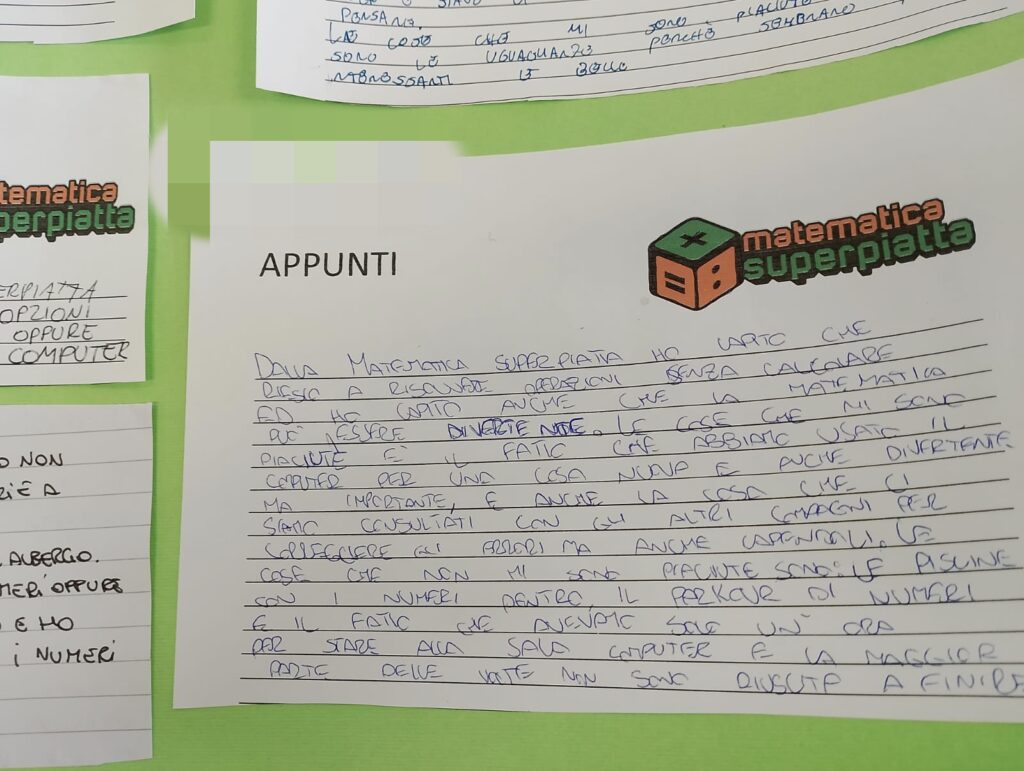 PENSARE.
LE COSE CHE MI SONO PIACIUTE
SONO LE UGUAGLIANZE PERCHÈ SEMBRANO
INTERESSANTI E BELLE
tematica
perpiatta
ERPIATTA
OPZIONI
OPPURE
COMPUTER
O NON
RIÈ A
ALBERGIO.
MERI OPPURE
O E HO
I NUMERI
APPUNTI
matematica
superpiatta
DALLA MATEMATICA SUPERPIATTA HO CAPITO CHE
RIESCO A RISOLVERE OPERAZIONI SENZA CALCOLARE
ED HO CAPITO ANCHE CHE LA MATEMATICA
PUÒ ESSERE DIVERTENTE. LE COSE CHE MI SONO
PIACIUTE È IL FATTO CHE ABBIAMO USATO IL
COMPUTER PER UNA COSA NUOVA E ANCHE DIVERTENTE
MA IMPORTANTE, E ANCHE LA COSA CHE CI
SIAMO CONSULTATI CON GLI ALTRI COMPAGNI PER
CORREGGERE GLI ERRORI MA ANCHE CAPENDOLI. LE
COSE CHE NON MI SONO PIACIUTE SONO: LE PISCINE
CON I NUMERI DENTRO, IL PARKOUR DI NUMERI
E IL FATTO CHE AVEVAMO SOLO UN'ORA
PER STARE ALLA SALA COMPUTER E LA MAGGIOR
PARTE DELLE VOLTE NON SONO RIUSCITA A FINIRE